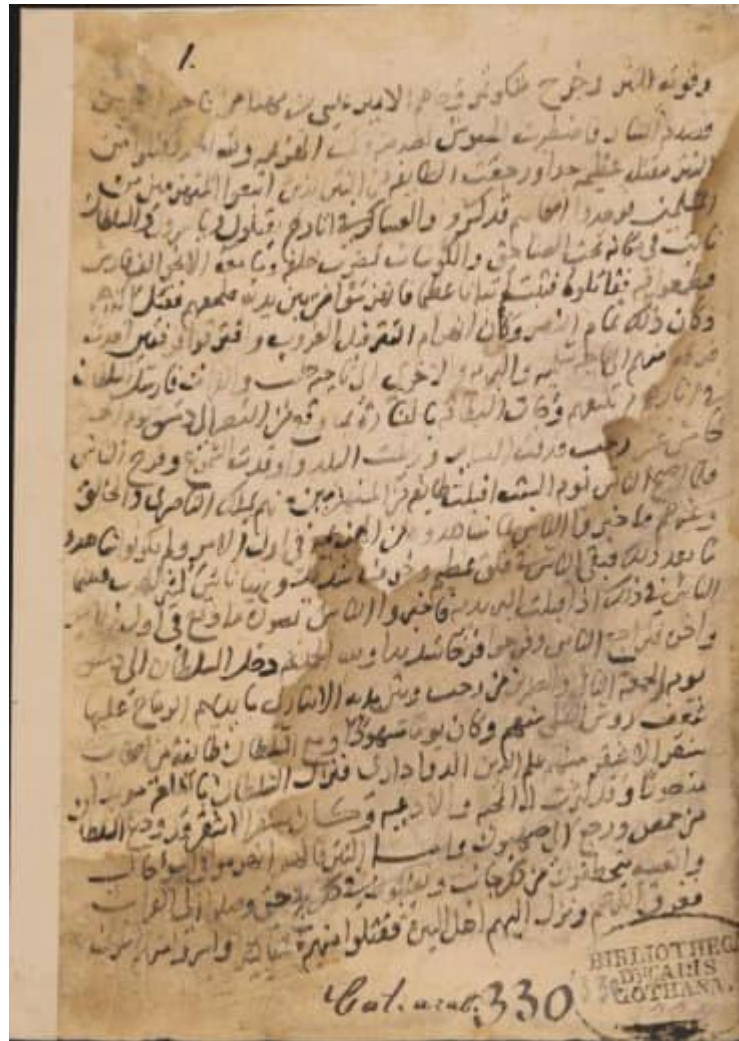 1.
وخرج الامير عيسى بن مهنا من ناحية
التتار فاضطربت الجيوش ولله الحمد
التتر مقتلة عظيمة جدا ورجعت الطائفة من التتر الذين اتبعوا المنهزمين من
المسلمين فوجدوا اصحابهم قد كسروا والعساكر في اثارهم يقتلون وياسرون والسلطان
ثابت في مكانه تحت الصناجق والكوسات تضرب خلفه وما معه الا الف فارس
فطمعوا فيه فقاتلوه فثبت لهم ثباتا عظيما فانهزموا من بين يديه فلحقهم فقتل اكثرهم
وكان ذلك تمام النصر وكان انهزام التتر قبل الغروب وافترقوا فرقتين اخذت
فرقة منهم الى ناحية سلمية والبرية والاخرى الى ناحية حلب والفرات فارسل السلطان
في اثارهم من يتبعهم وكانت البطاقة بالبشارة بما وقع من النصر الى دمشق
رجب فدقت البشاير وزينت البلد واوقدت الشموع وفرح الناس
فلما اصبح الناس يوم السبت اقبلت طايفة من المنهزمين منهم بيليك الناصري والحالق
وغيرهم فاخبروا الناس بما شاهدوه من الهزيمة في اول الامر ولم يكونوا شاهدوا
ما بعد ذلك فبقي الناس في قلق عظيم وخوف شديد وتهيأ ناس كثير للهرب فبينما
الناس في ذلك اذ اقبلت البريدية فاخبروا الناس بصورة ما وقع في اول
واخره فتراجع الناس وفرحوا فرحا شديدا ولله الحمد ثم دخل السلطان الى دمشق
يوم الجمعة الثاني والعشرين من رجب وبين يديه الاسارى بايديهم الرماح عليها
شقف رؤس القتلى منهم وكان يوما مشهودا ومع السلطان طايفة من اصحاب
سنقر الاشقر منهم علم الدين الدوادارى فنزل السلطان بالقلعة مؤيدا
منصورا وقد كثرت له المحبة والادعية وكان سنقر الاشقر قد ودع السلطان
من حمص ورجع الى صهيون واما التتر فانهم انهزموا في اسوا حال
واتعسه يتخطفون من كل جانب ويقتلون من كل فج حتى وصلوا الى الفرات
فغرق اكثرهم ونزل اليهم اهل البيرة فقتلوا منهم خلقا كثيرا واسروا منهم اخرين
Cat. arab. 330
BIBLIOTHECA
DUCALIS
GOTHANA.